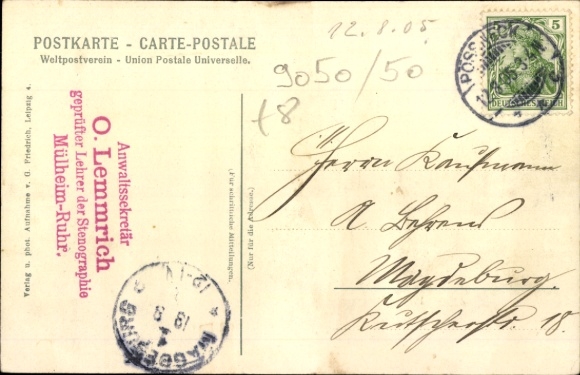 POSTKARTE - CARTE-POSTALE
Weltpostverein - Union Postale Universelle.
12.8.05
9050/50
PÖSSNECK
5
DEUTSCHES REICH
Anwaltssekretär
O. Lemmrich
geprüfter Lehrer der Stenographie
Mülheim-Ruhr.
Verlag u. phot. Aufnahme v. G. Friedrich, Leipzig 4.
(Für schriftliche Mitteilungen.)
(Nur für die Adresse)
Herrn Kaufmann
A Behrens
Magdeburg.
Rutscherstr. 18.
MAGDEBURG